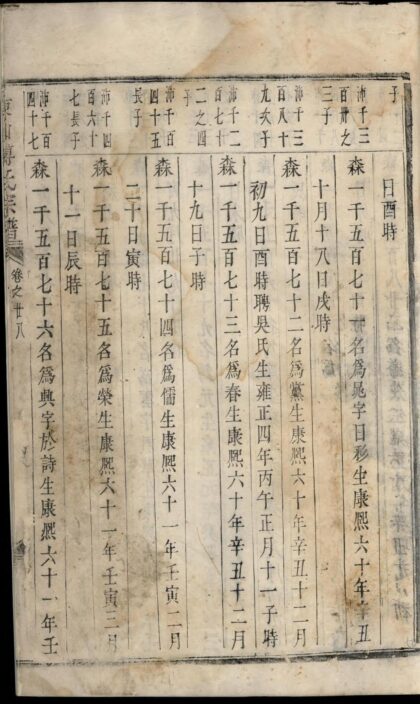 子
日酉時
沛千三
百卅之
三子
森一千五百七十一名為晁字日移生康熙六十年辛丑
十月十八日戌時
沛千三
百八十
九次子
森一千五百七十二名為黨生康熙六十年辛丑十二月
初九日酉時聘吳氏生雍正四年丙午正月十一子時
沛千二
百七十
二之四
子
森一千五百七十三名為春生康熙六十年辛丑十二月
十九日子時
沛千百
四十五
長子
森一千五百七十四名為儒生康熙六十一年壬寅二月
二十日寅時
沛千四
百六十
七長子
森一千五百七十五名為榮生康熙六十一年壬寅三月
十一日辰時
沛千百
四十七
森一千五百七十六名為興字於詩生康熙六十一年壬
傅氏宗譜
卷之廿八